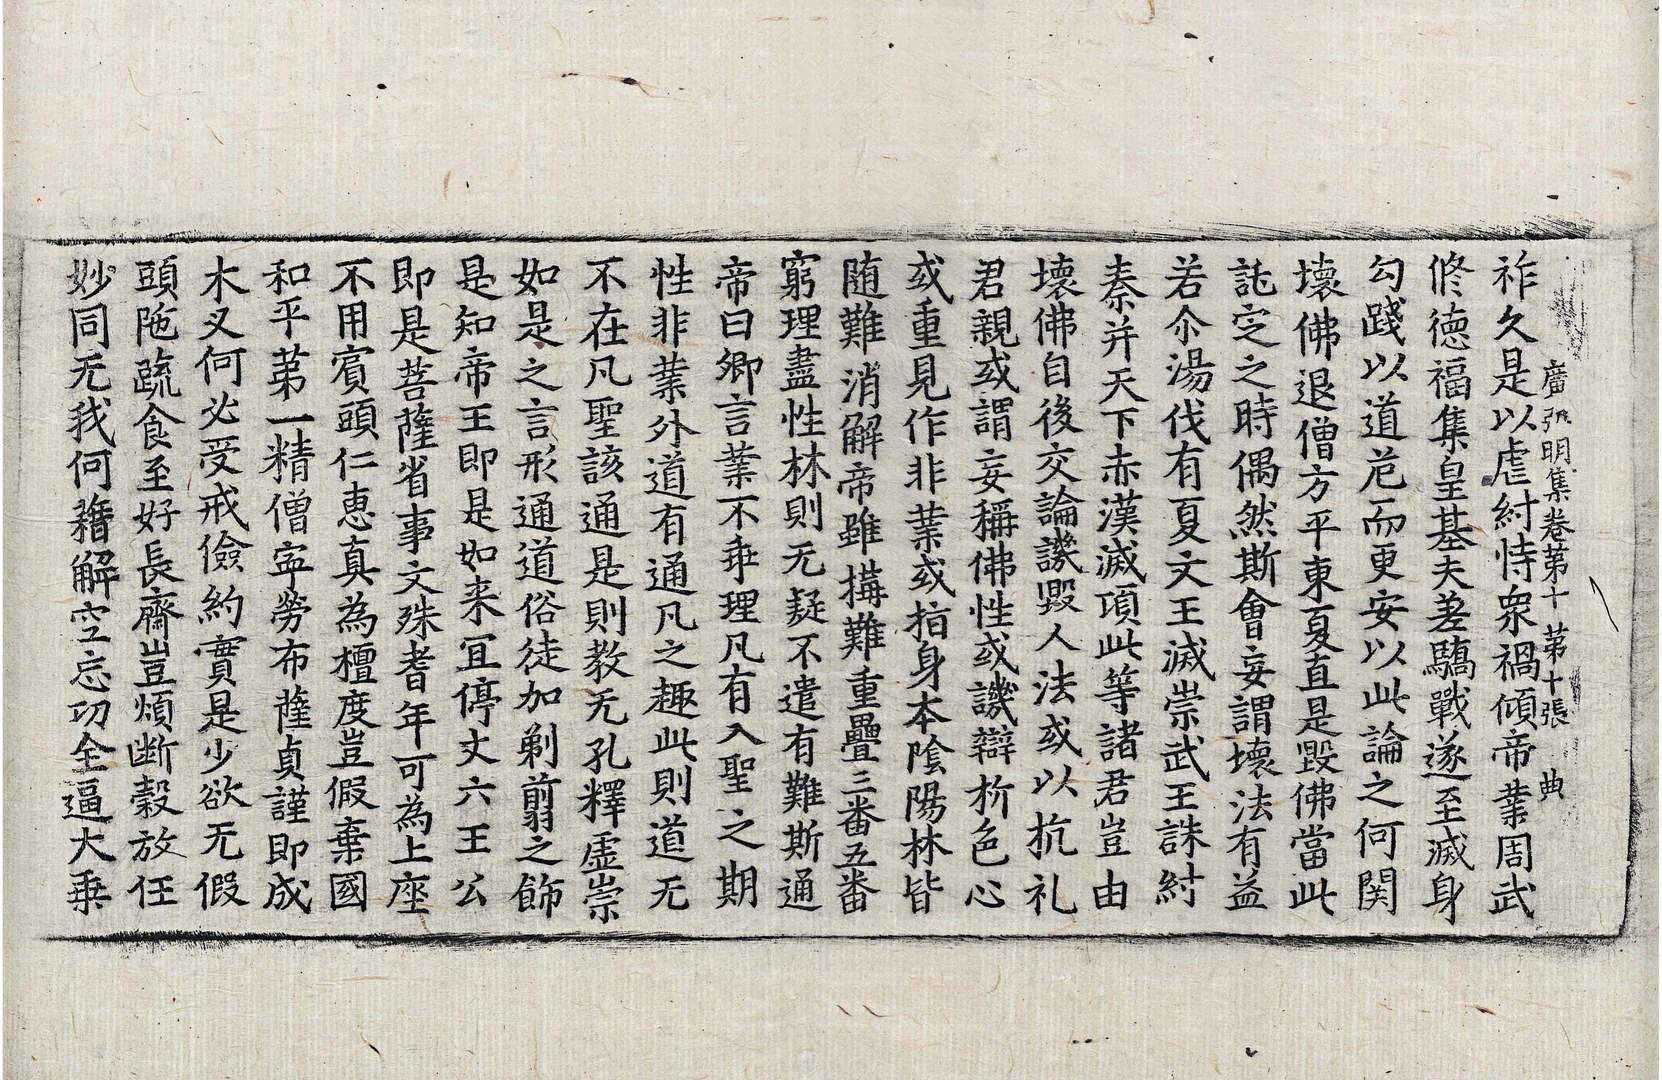 廣弘明集卷第十 第十張 典
祚久是以虐紂恃衆禍傾帝業周武
修德福集皇基夫差驕戰遂至滅身
勾踐以道危而更安以此論之何関
壞佛退僧方平東夏直是毀佛當此
託定之時偶然斯會妄謂壞法有益
若尒湯伐有夏文王滅崇武王誅紂
秦并天下赤漢滅項此等諸君豈由
壞佛自後交論譏毀人法或以抗礼
君親或謂妄稱佛性或譏辯析色心
或重見作非業或指身本陰陽林皆
随難消解帝雖搆難重疊三番五番
窮理盡性林則无疑不遣有難斯通
帝曰卿言業不乖理凡有入聖之期
性非業外道有通凡之趣此則道无
不在凡聖該通是則教无孔釋虛崇
如是之言形通道俗徒加剃剪之飾
是知帝王即是如来冝停丈六王公
即是菩薩省事文殊耆年可為上座
不用賔頭仁惠真為檀度豈假棄國
和平苐一精僧寧勞布薩貞謹即成
木叉何必受戒儉約實是少欲无假
頭陁蔬食至好長齋豈煩断穀放任
妙同无我何藉解空忘功全逼大乗